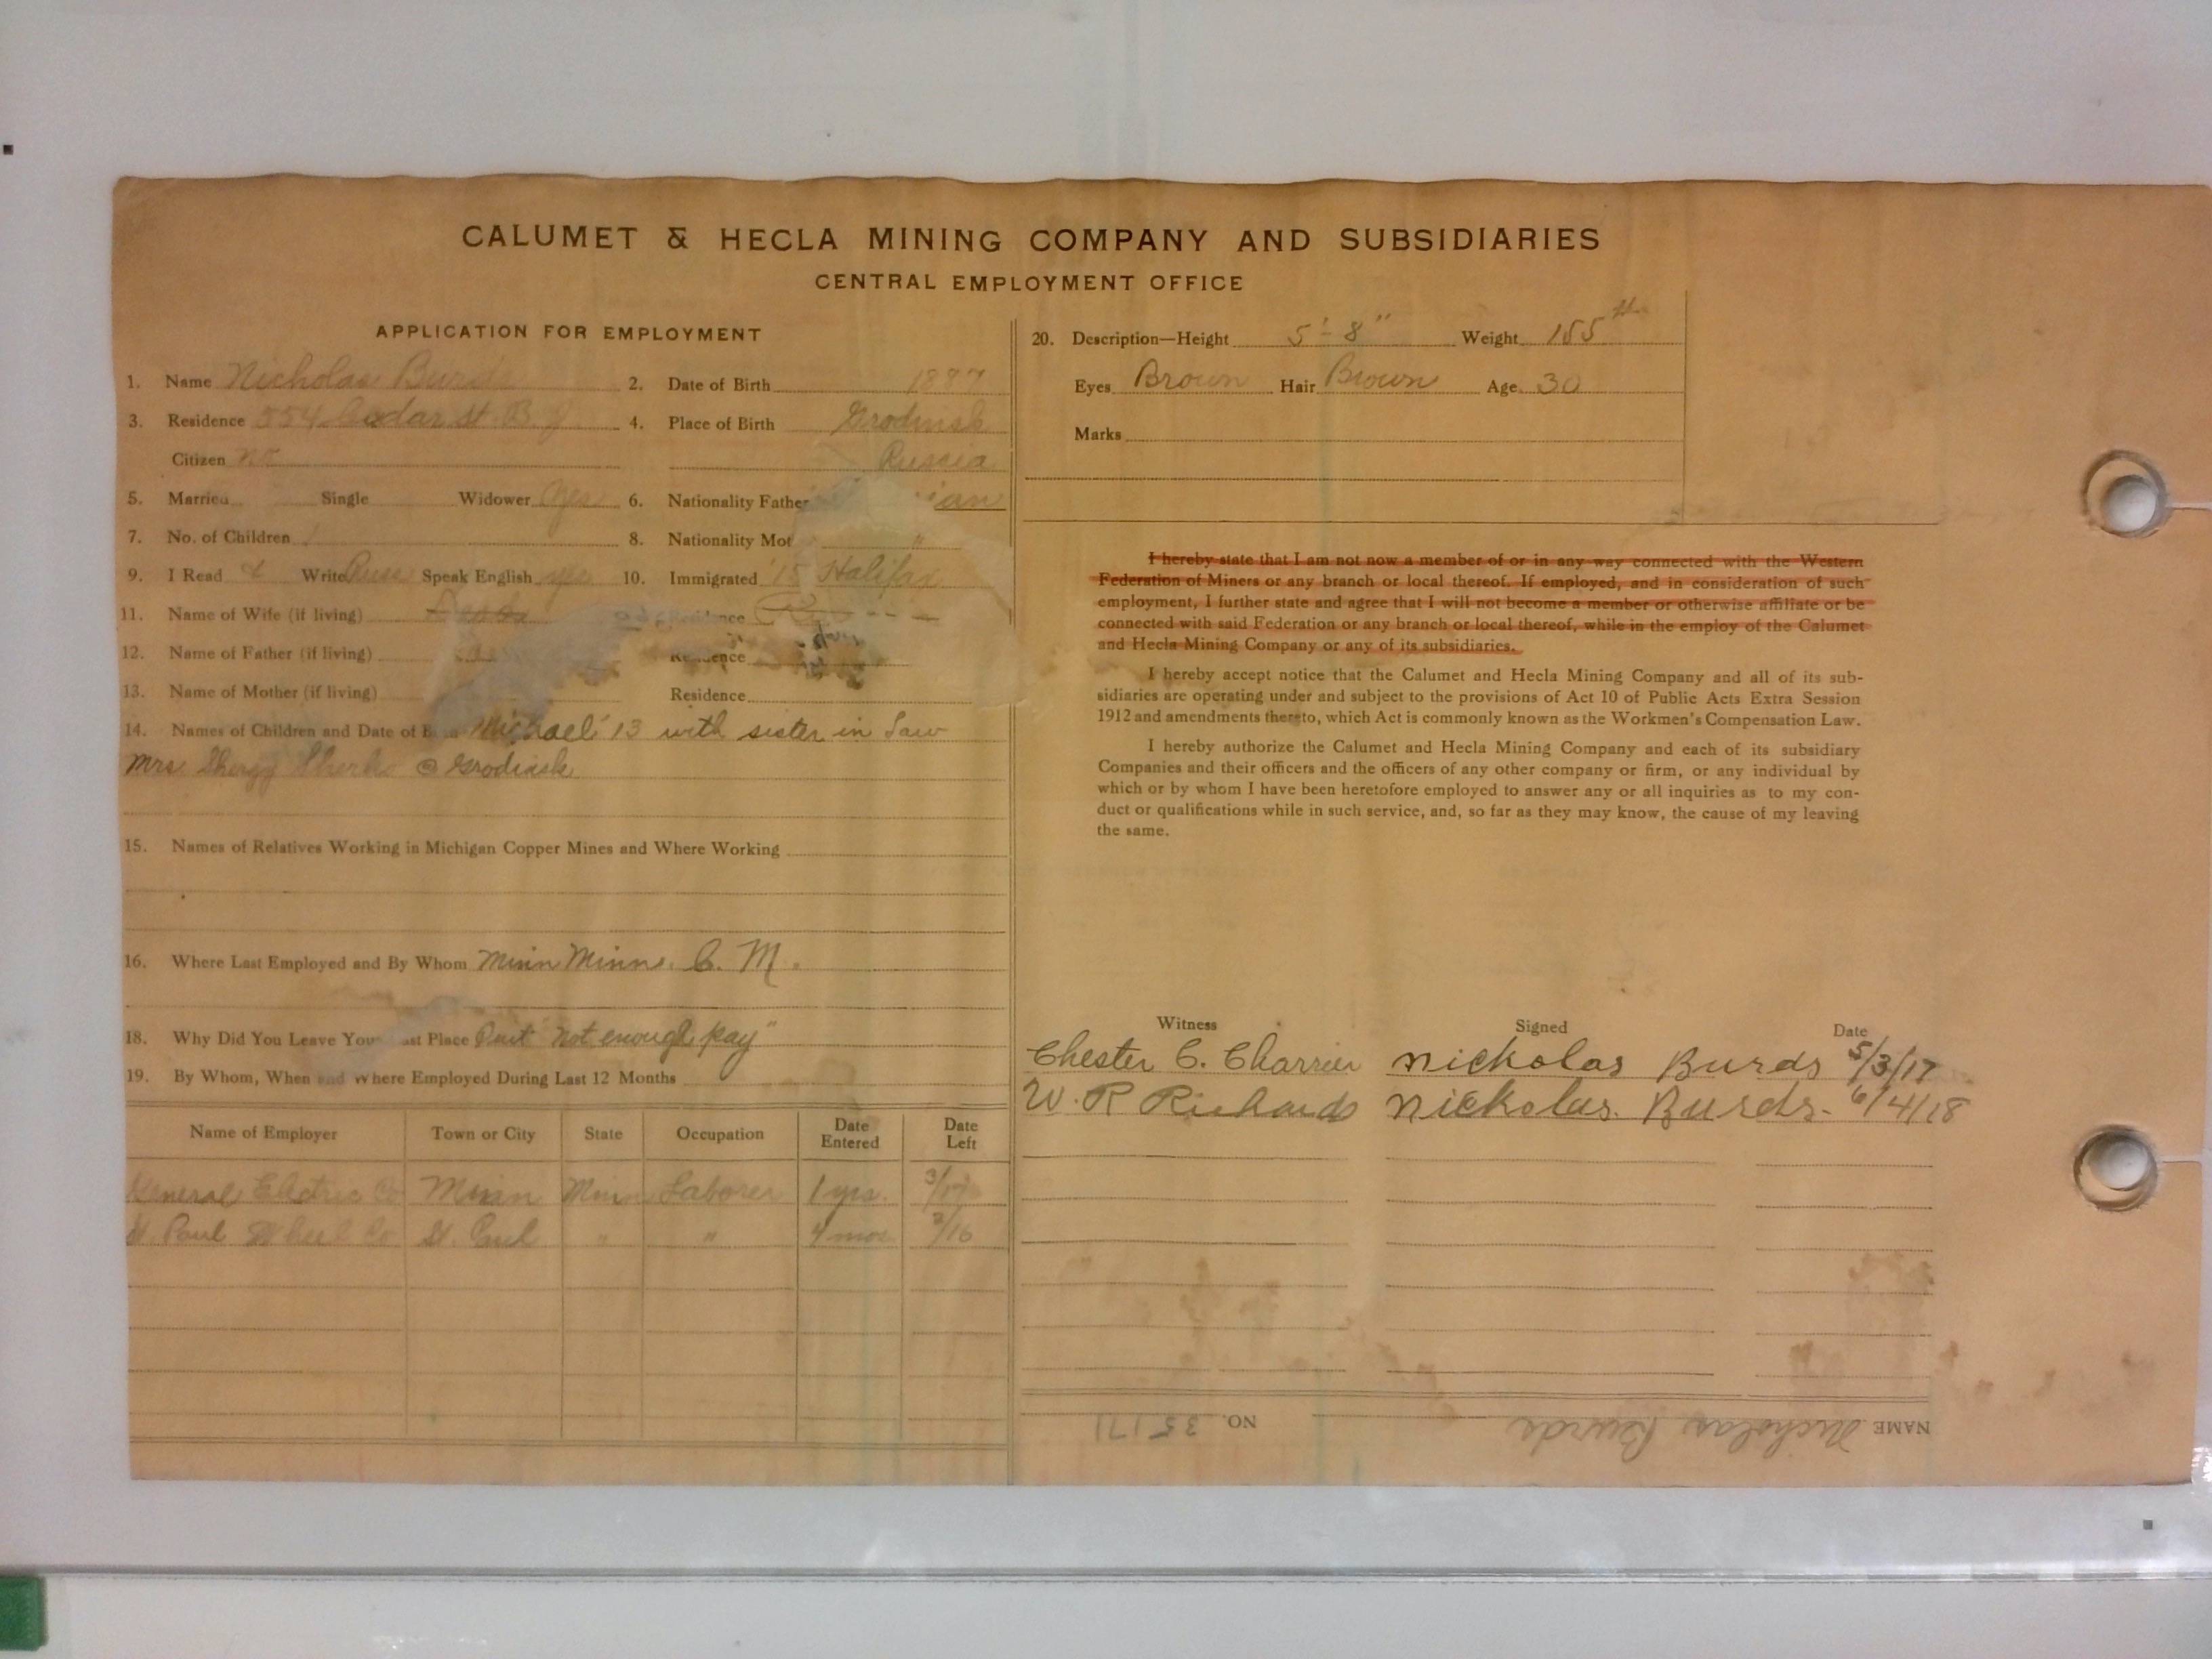 CALUMET & HECLA MINING COMPANY AND SUBSIDIARIES
CENTRAL EMPLOYMENT OFFICE
APPLICATION FOR EMPLOYMENT
1. Name Nicholas Burds 2. Date of Birth 1887
3. Residence 554 Cedar St. 4. Place of Birth Grodnisk
Citizen no Russia
5. Married Single Widower yes 6. Nationality Father
7. No. of Children 1 8. Nationality Mot "
9. I Read & Write Russ Speak English yes 10. Immigrated '15 Halifax
11. Name of Wife (if living) Residence
12. Name of Father (if living) Residence
13. Name of Mother (if living) Residence
14. Names of Children and Date of Michael '13 with sister in Law
Mrs. @ Grodnisk
15. Names of Relatives Working in Michigan Copper Mines and Where Working
16. Where Last Employed and By Whom Minn Minn. C. M.
18. Why Did You Leave Your Last Place Quit "Not enough pay"
19. By Whom, When and Where Employed During Last 12 Months
Name of Employer Town or City State Occupation Date Entered Date Left
General Electric Co Minn Minn Laborer 1 yrs. 3/17
St. Paul Wheel Co St. Paul " " 4 mos. /16
20. Description—Height 5'-8" Weight 155
Eyes Brown Hair Brown Age 30
Marks
I hereby state that I am not now a member of or in any way connected with the Western
Federation of Miners or any branch or local thereof. If employed, and in consideration of such
employment, I further state and agree that I will not become a member or otherwise affiliate or be
connected with said Federation or any branch or local thereof, while in the employ of the Calumet
and Hecla Mining Company or any of its subsidiaries.
I hereby accept notice that the Calumet and Hecla Mining Company and all of its sub-
sidiaries are operating under and subject to the provisions of Act 10 of Public Acts Extra Session
1912 and amendments thereto, which Act is commonly known as the Workmen's Compensation Law.
I hereby authorize the Calumet and Hecla Mining Company and each of its subsidiary
Companies and their officers and the officers of any other company or firm, or any individual by
which or by whom I have been heretofore employed to answer any or all inquiries as to my con-
duct or qualifications while in such service, and, so far as they may know, the cause of my leaving
the same.
Witness Signed Date
Chester C. Charrier Nickolas Burds 5/3/17
W. R Richards Nickolas. Burds. 6/4/18
NAME Nicholas Burds NO. 35171